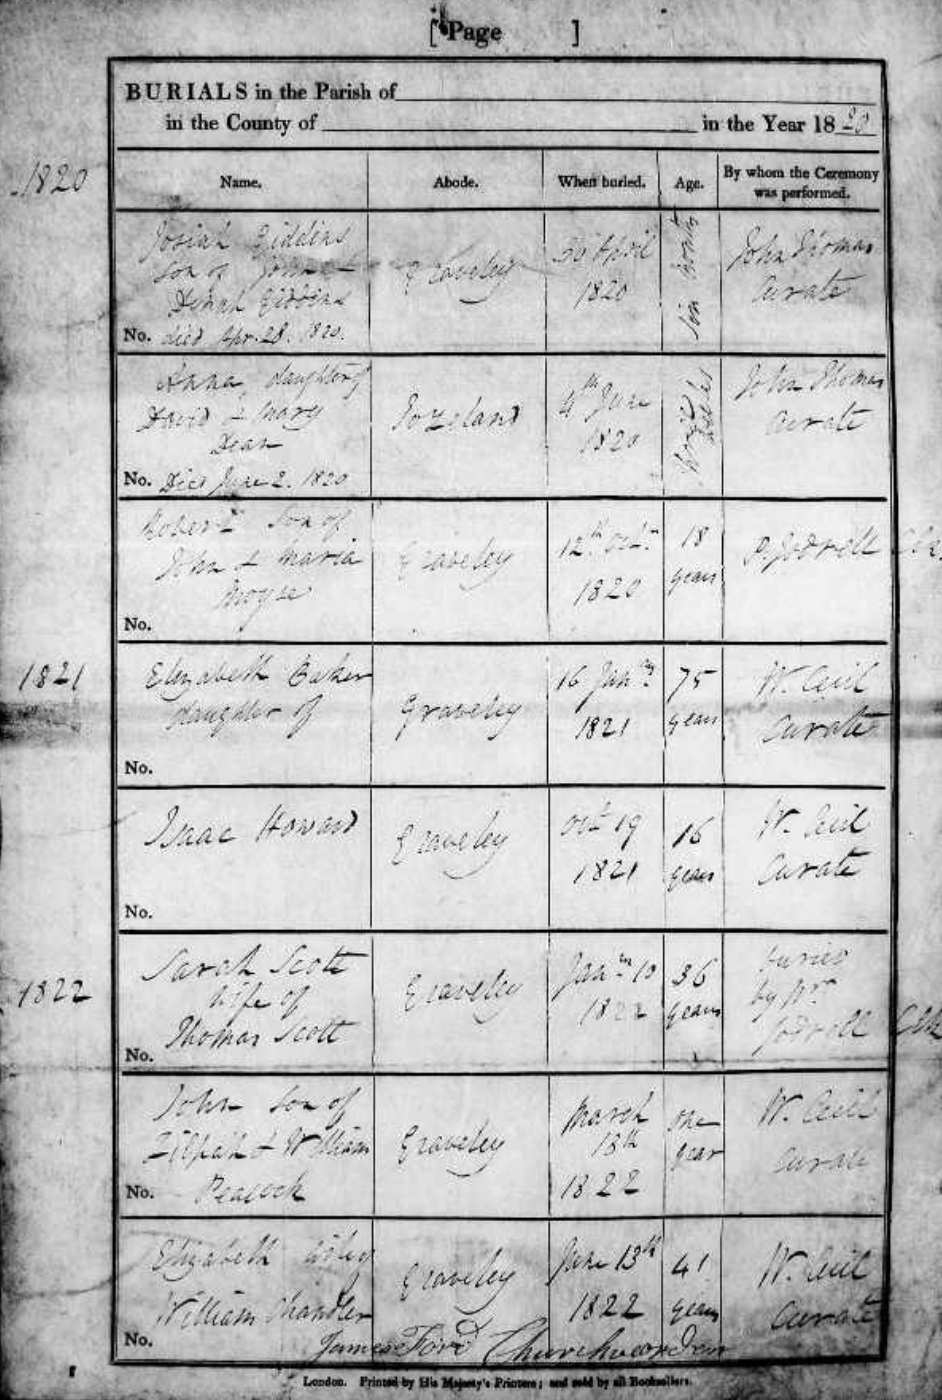 [ Page ]
BURIALS in the Parish of
in the County of in the Year 18 20
1820
Name. Abode. When buried. Age. By whom the Ceremony was performed.
Josiah Giddins
Son of John &
Dinah Giddins
No. died Apr. 28. 1820.
Graveley
30 April
1820
Six Months
John Thomas
Curate
Anna, daughter of
David & Mary
Dean
No. Died June 2. 1820
Yozeland
4th June
1820
John Thomas
Curate
Robert Son of
John & Maria
Moyse
No.
Graveley
12th Octr
1820
18
years
P. Jodrell Clk
1821
Elizabeth Baker
daughter of
No.
Graveley
16 Jany
1821
75
years
W. Cecil
Curate
Isaac Howard
No.
Graveley
Oct 19
1821
16
years
W. Cecil
Curate
1822
Sarah Scott
Wife of
No. Thomas Scott
Graveley
Jany 10
1822
36
years
buried
by Mr
Jodrell Clk
John Son of
Zilpah & William
No. Peacock
Graveley
March
13th
1822
one
year
W. Cecil
Curate
Elizabeth wife of
William Chandler
No.
Graveley
June 13th
1822
41
years
W. Cecil
Curate
James Ford Churchwarden
London. Printed by His Majesty's Printers; and sold by all Booksellers.